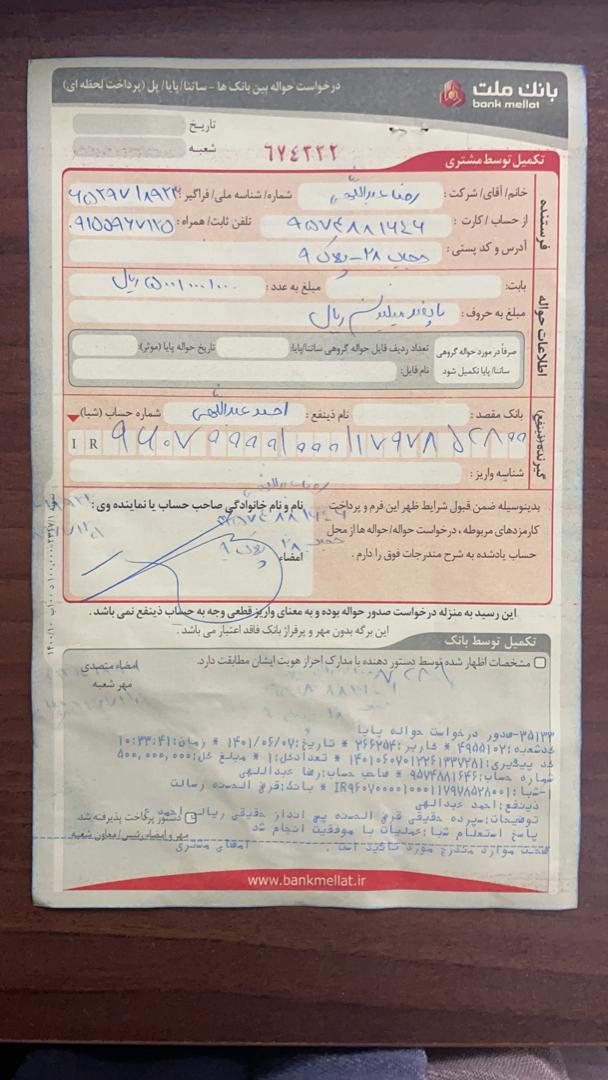 بانک ملت
bank mellat
درخواست حواله بین بانک ها - ساتنا/پایا/ پل (پرداخت لحظه ای)
تاریخ
شعبه
۶۷٤۲۲۲
تکمیل توسط مشتری
فرستنده
خانم/آقای/ شرکت : رضا عبداللهی شماره/ شناسه ملی/ فراگیر :
از حساب / کارت : ۹۵۷۴۸۸۱۶۴۶ تلفن ثابت/ همراه : ۰۹۱۵۵۹۶۷۱۲۵
آدرس و کد پستی : ۲۸ - پلاک ۹
اطلاعات حواله
بابت: مبلغ به عدد : ۵۰۰/۰۰۰/۰۰۰ ریال
مبلغ به حروف : پانصد میلیون ریال
صرفاً در مورد حواله گروهی ساتنا/ پایا تکمیل شود
تعداد ردیف فایل حواله گروهی ساتنا/پایا: تاریخ حواله پایا (موثر):
نام فایل:
گیرنده (ذینفع)
بانک مقصد : نام ذینفع : احمد عبداللهی شماره حساب (شبا)
I R ۹۶۰۷۰۰۰۰۱۰۰۰۱۱۷۹۷۸۵۲۸۰۰۱
شناسه واریز :
بدینوسیله ضمن قبول شرایط ظهر این فرم و پرداخت
کارمزدهای مربوطه ، درخواست حواله/ حواله ها از محل
حساب یادشده به شرح مندرجات فوق را دارم .
نام و نام خانوادگی صاحب حساب یا نماینده وی :
امضاء
این رسید به منزله درخواست صدور حواله بوده و به معنای واریز قطعی وجه به حساب ذینفع نمی باشد .
این برگه بدون مهر و پرفراژ بانک فاقد اعتبار می باشد .
تکمیل توسط بانک
مشخصات اظهار شده توسط دستور دهنده با مدارک احراز هویت ایشان مطابقت دارد.
امضاء متصدی
مهر شعبه
۳۵۱۳۳-صدور درخواست حواله پایا
کدشعبه:۴۹۵۵۱۰۲ * کاربر:۲۶۶۲۵۴ * تاریخ:۱۴۰۱/۰۶/۰۷ * زمان:۱۰:۳۳:۴۱
کد پیگیری:۱۴۰۱۰۶۰۷۰۱۲۲۶۱۳۳۷۲۸۱ * تعدادکل:۱ * مبلغ کل:۵۰۰,۰۰۰,۰۰۰
شماره حساب:۹۵۷۴۸۸۱۶۴۶ * صاحب حساب:رضا عبداللهی
-شبا:IR۹۶۰۷۰۰۰۰۱۰۰۰۱۱۷۹۷۸۵۲۸۰۰۱ * بانک:قرض الحسنه رسالت
ذینفع:احمد عبدالهی
توضیحات:سپرده حقیقی قرض الحسنه پس انداز حقیقی ریالی احمد ع
پاسخ استعلام شبا:عملیات با موفقیت انجام شد
دستور پرداخت پذیرفته شد
مهر و امضاء رئیس/ معاون شعبه
صحت موارد مندرج مورد تائید است . امضای مشتری
www.bankmellat.ir